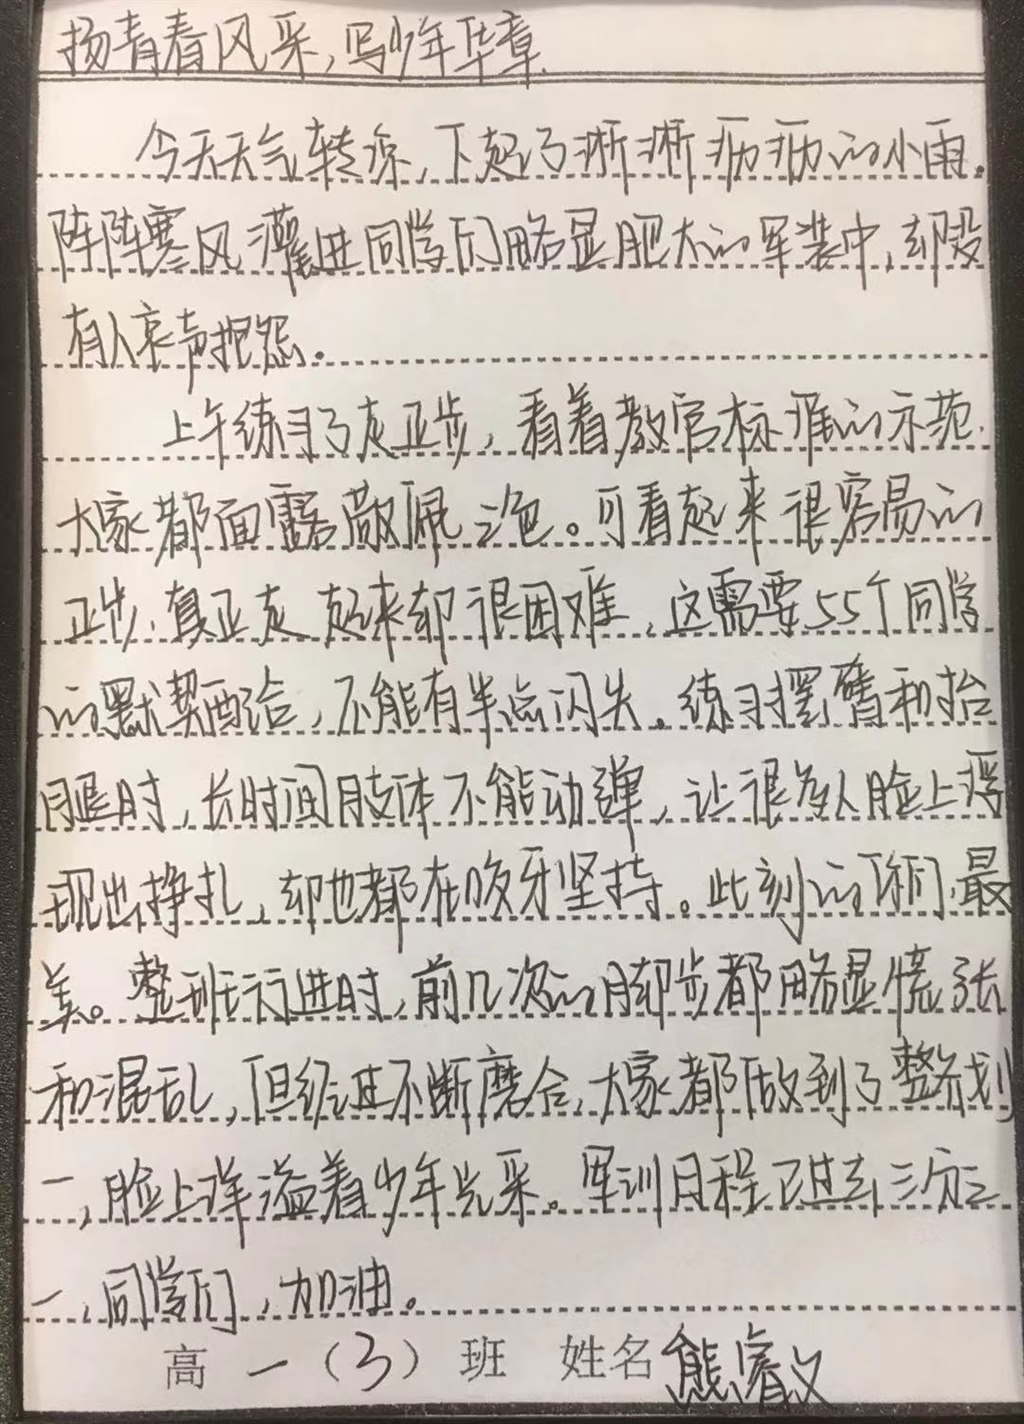 扬青春风采,写少年华章.
今天天气转凉,下起了淅淅沥沥的小雨.
阵阵寒风灌进同学们略显肥大的军装中,却没
有人哀声抱怨.
上午练习了走正步,看着教官标准的示范,
大家都面露敬佩之色。可看起来很容易的
正步,真正走起来却很困难,这需要55个同学
的默契配合,不能有半点闪失。练习摆臂和抬
腿时,长时间肢体不能动弹,让很多人脸上浮
现出挣扎,却也都在咬牙坚持。此刻的你们,最
美。整班行进时,前几次的脚步都略显慌张
和混乱,但经过不断磨合,大家都做到了整齐划
一,脸上洋溢着少年光采。军训日程已过去三分之
一,同学们,加油。
高一(3)班 姓名熊睿义